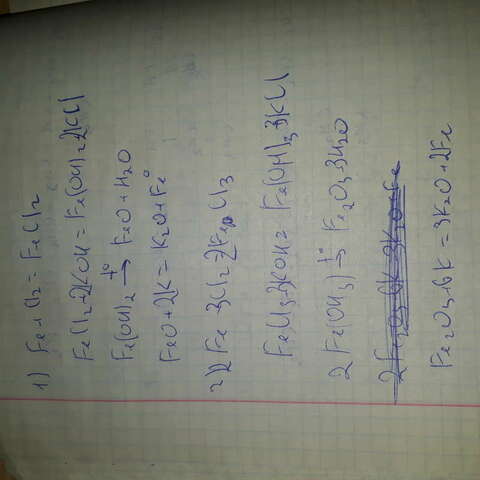 1) Fe + Cl2 = FeCl2
FeCl2 + 2KOH = Fe(OH)2 2KCl
Fe(OH)2 t°→ FeO + H2O
FeO + 2K = K2O + Fe°
2) 2Fe 3Cl2 = 2FeCl3
FeCl3 3KOH = Fe(OH)3 3KCl
2Fe(OH3) t°→ Fe2O3 3H2O
2Fe2O3 6K 3K2O + Fe
Fe2O3 + 6K = 3K2O + 2Fe